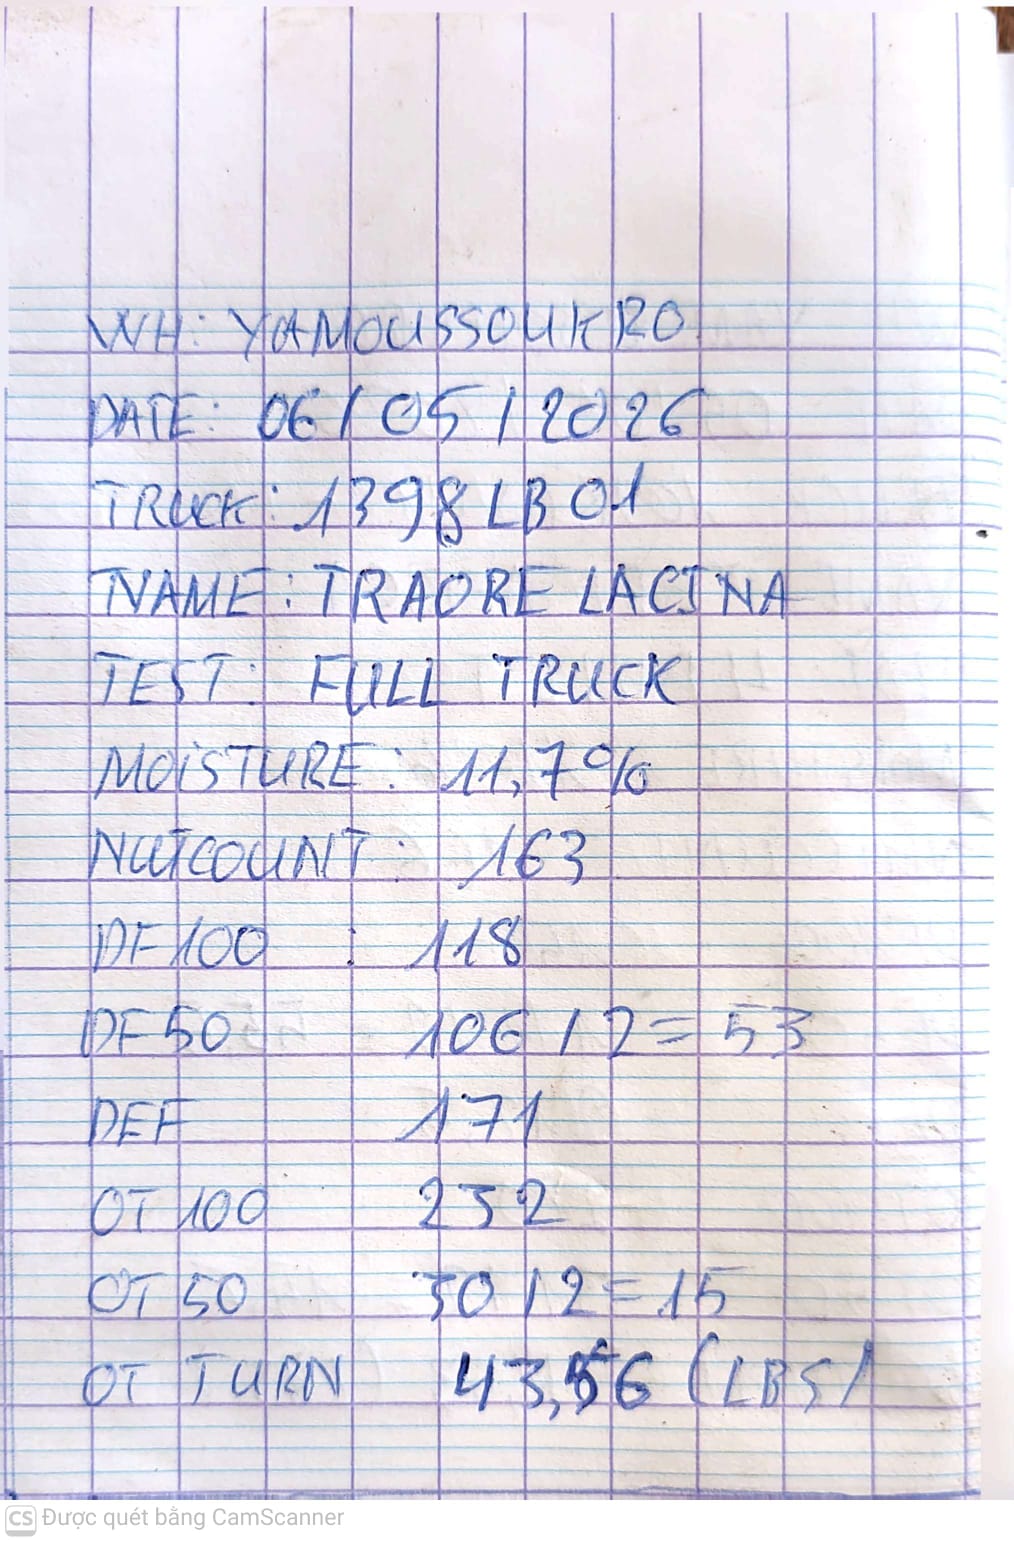 WH: YAMOUSSOUKRO
DATE: 06/05/2026
TRUCK: 1398LB01
NAME: TRAORE LACINA
TEST: FULL TRUCK
MOiSTURE: 11,7%
NUTCOUNT: 163
DF100 : 118
DF50 106/2=53
DEF 171
OT 100 232
OT 50 30/2=15
OT TURN 43,56 (LBS/
CS Được quét bằng CamScanner